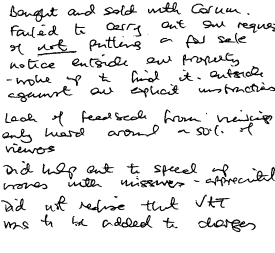 Bought and sold with Corum.
Failed to carry out our reques
of not putting a for sale
notice outside our property
- woke up to find it outside
against our explicit instructions
Lack of feedback from viewings
only heard around ~ 50% of
viewers
Did help out to speed up
moves with missives - appreciated
Did not realise that VAT
was to be added to charges